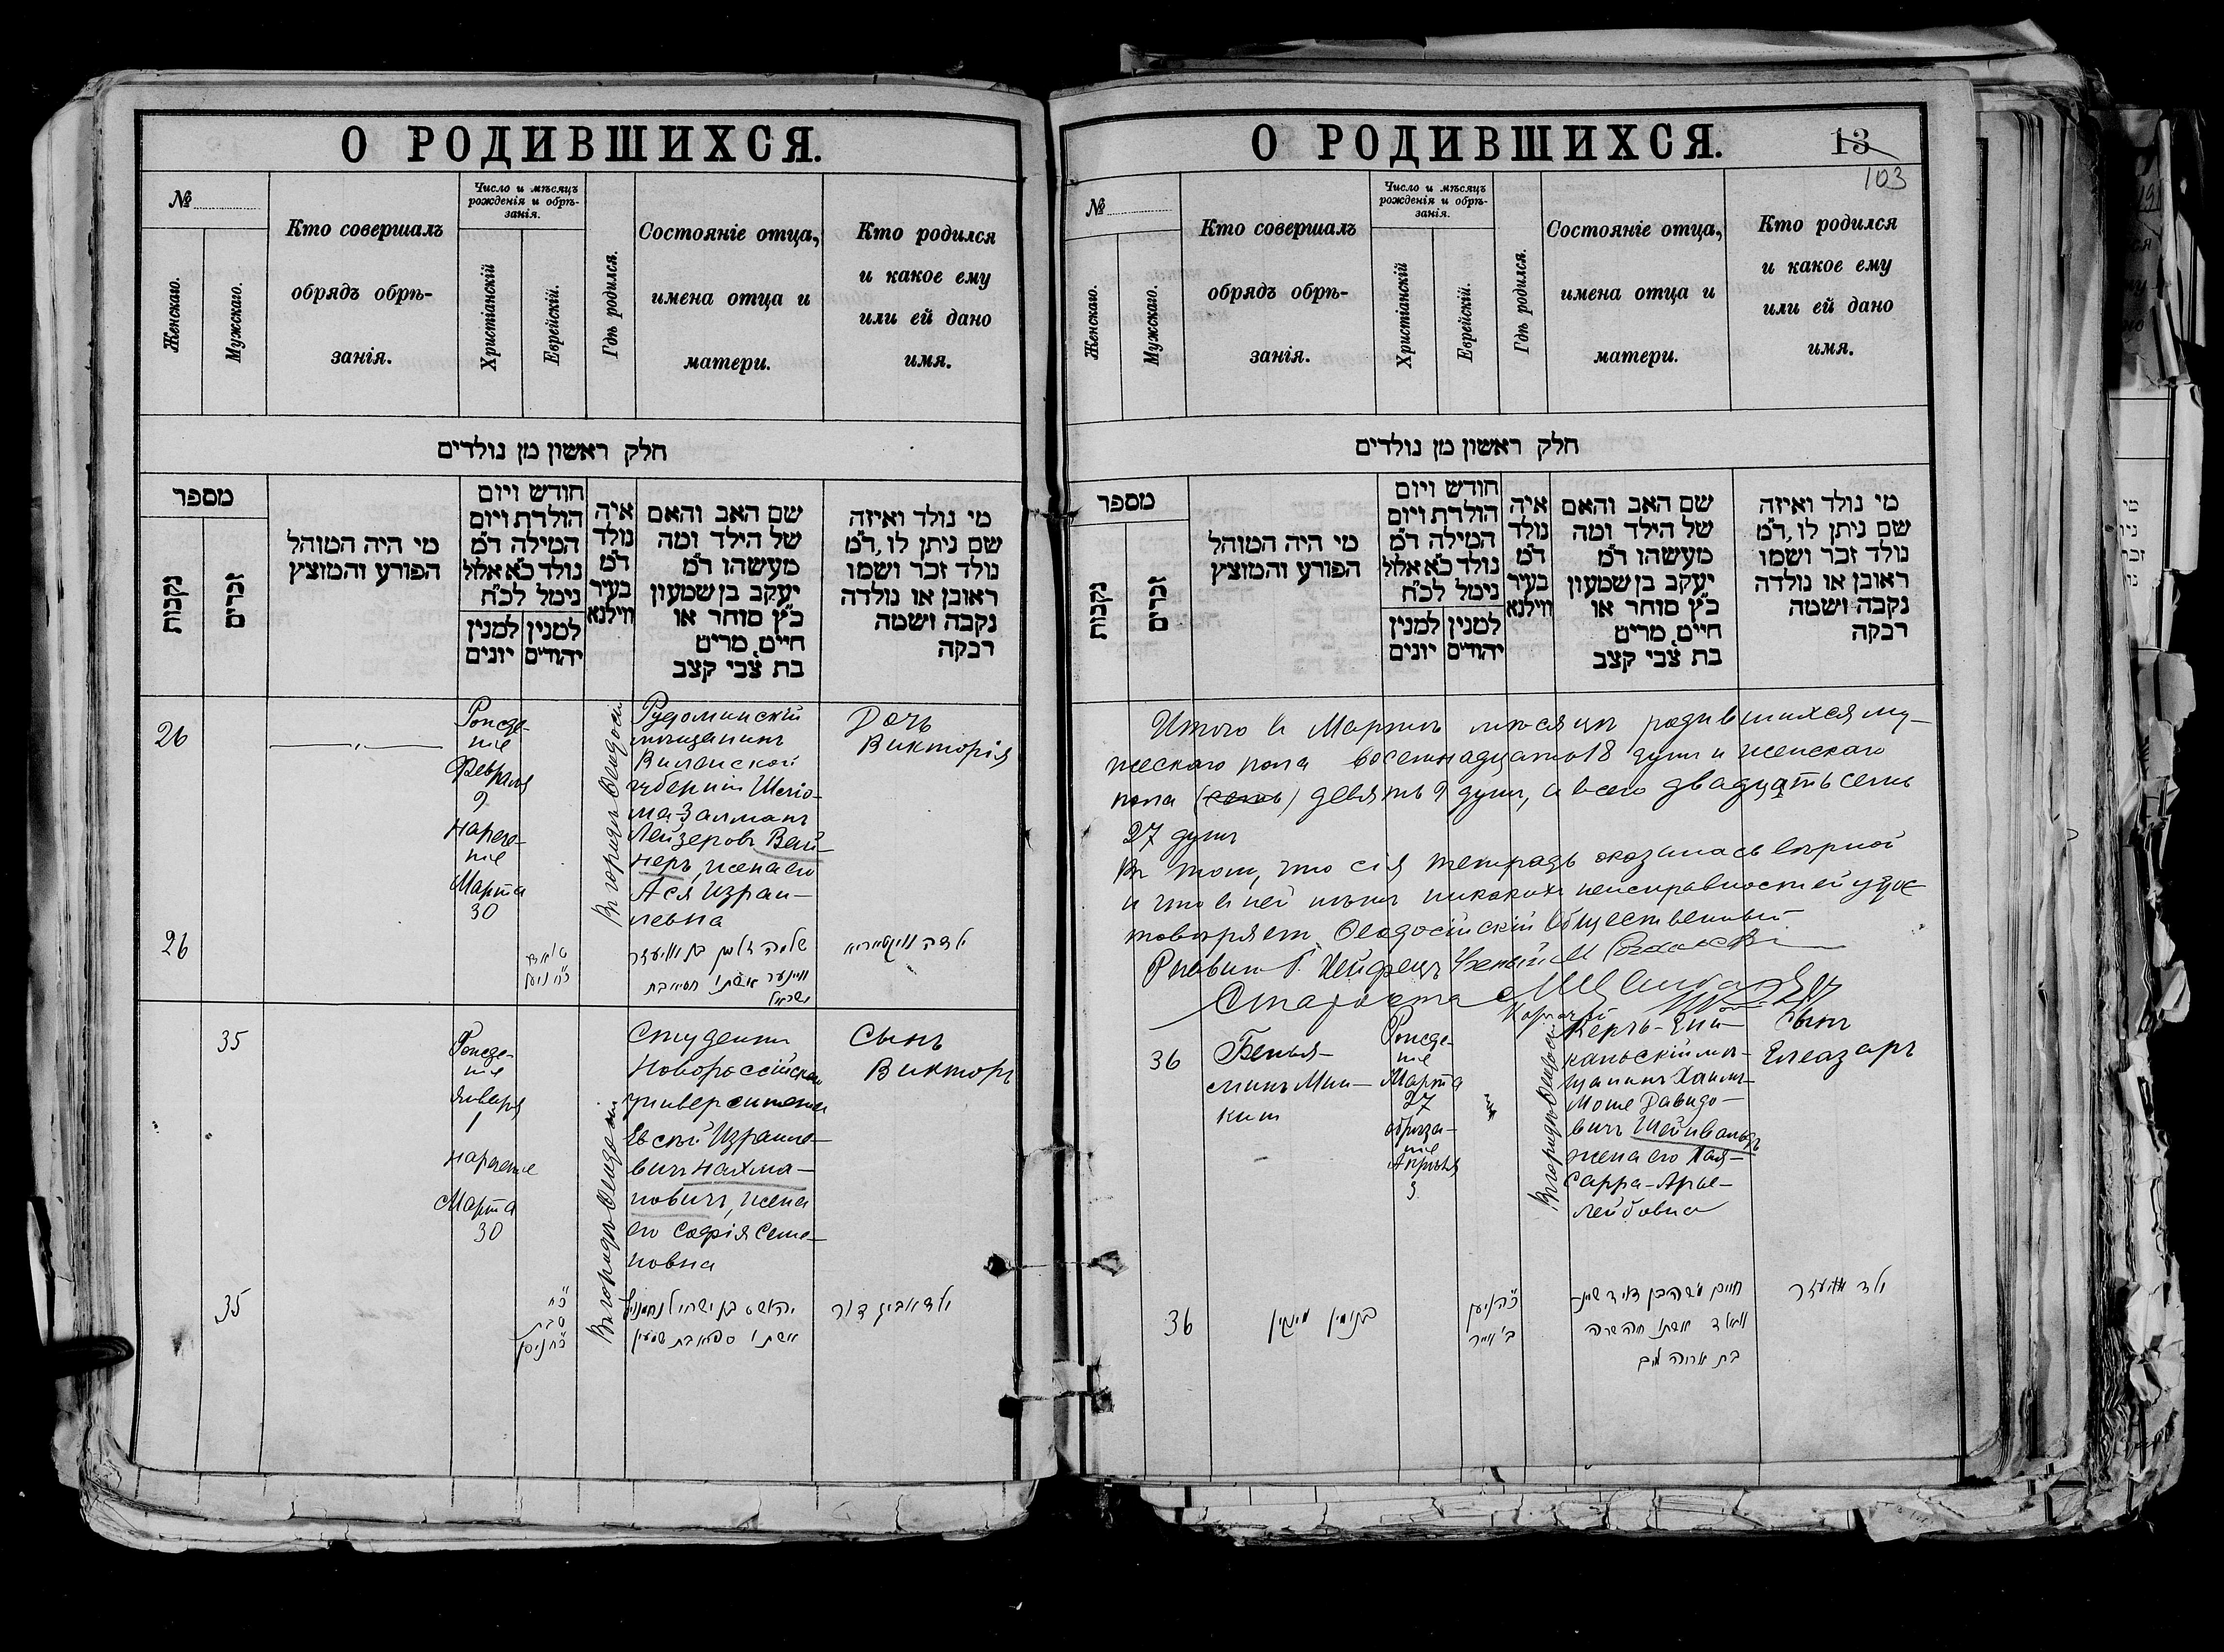 О РОДИВШИХСЯ.
№
Женскаго.
Мужскаго.
Кто совершалъ
обрядъ обрѣ-
занія.
Число и мѣсяцъ
рожденія и обрѣ-
занія.
Христіанскій
Еврейскій.
Гдѣ родился.
Состояніе отца,
имена отца и
матери.
Кто родился
и какое ему
или ей дано
имя.
חלק ראשון מן נולדים
מספר
נקבות
זכרים
מי היה המוהל
הפורע והמוצץ
חודש ויום
הולדת ויום
המילה ד"מ
נולד כ"א אלול
נימל לכ"ח
למנין למנין
יהודים יונים
איה
נולד
ד"מ
בעיר
ווילנא
שם האב והאם
של הילד ומה
מעשהו ד"מ
יעקב בן שמעון
כ"ץ סוחר או
חיים, מרים
בת צבי קצב
מי נולד ואיזה
שם ניתן לו, ד"מ
נולד זכר ושמו
ראובן או נולדה
נקבה ושמה
רבקה
26
Рожде-
ніе
Февраля
9
нарече-
ніе
Марта
30
Въ городѣ Ѳеодосіи
Рудоминскій
мѣщанинъ
Виленской
губерніи Шліо-
ма-Залманъ
Лейзеровъ Вей-
неръ, жена его
Ася Израи-
левна
Дочь
Викторія
26
35
Рожде-
ніе
Января
1
нареченіе
Марта
30
Въ городѣ Ѳеодосіи
Студентъ
Новороссійскаго
университета
Евсѣй Израиле-
вичъ Нахма-
новичъ, жена
его Софія Семе-
новна
Сынъ
Викторъ
35
О РОДИВШИХСЯ.
13
103
№
Женскаго.
Мужскаго.
Кто совершалъ
обрядъ обрѣ-
занія.
Число и мѣсяцъ
рожденія и обрѣ-
занія.
Христіанскій
Еврейскій.
Гдѣ родился.
Состояніе отца,
имена отца и
матери.
Кто родился
и какое ему
или ей дано
имя.
חלק ראשון מן נולדים
מספר
נקבות
זכרים
מי היה המוהל
הפורע והמוצץ
חודש ויום
הולדת ויום
המילה ד"מ
נולד כ"א אלול
נימל לכ"ח
למנין למנין
יהודים יונים
איה
נולד
ד"מ
בעיר
ווילנא
שם האב והאם
של הילד ומה
מעשהו ד"מ
יעקב בן שמעון
כ"ץ סוחר או
חיים, מרים
בת צבי קצב
מי נולד ואיזה
שם ניתן לו, ד"מ
נולד זכר ושמו
ראובן או נולדה
נקבה ושמה
רבקה
Итого въ Мартѣ мѣсяцѣ родившихся му-
жескаго пола восемнадцать 18 душъ и женскаго
пола (семь) девять 9 душъ, а всего двадцать семь
27 душъ
Въ томъ, что сія тетрадь оказалась вѣрной
и что въ ней нѣтъ никакихъ неисправностей удос
товѣряетъ Ѳеодосійскій Общественный
Раввинъ
Староста
36
Бенья-
минъ Мин-
кинъ
Рожде-
ніе
Марта
27
обрѣза-
ніе
Апрѣля
3
Въ городѣ Ѳеодосіи
Керчь-Ени-
кальскій мѣ-
щанинъ Хаимъ-
Моше Давидо-
вичъ Шейнвальдъ
жена его Хая-
Сарра-Арье-
Лейбовна
Сынъ
Елеазаръ
36
בנימין מינקין